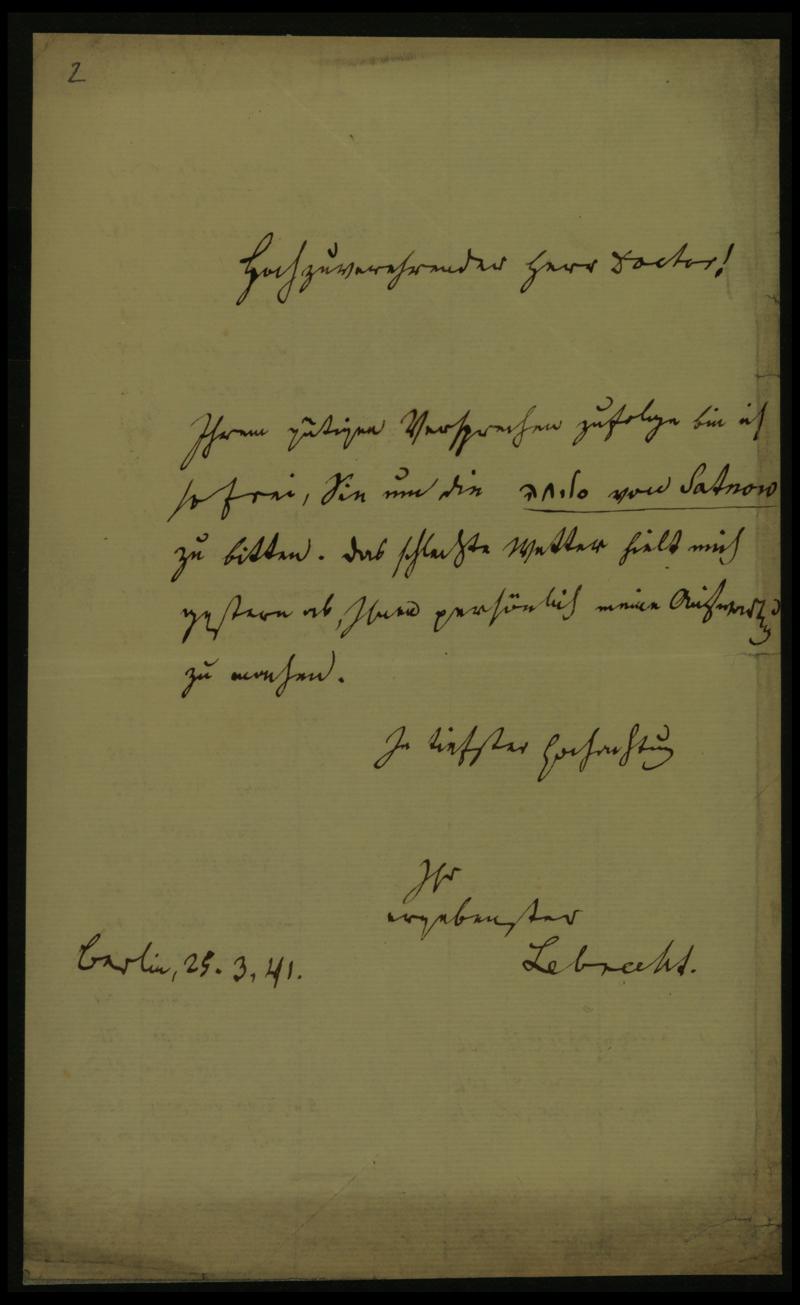 2
Hochzuverehrender Herr Doctor!
Ihrem gütigen Versprechen zufolge bin ich
so frei, Sie um die von Satnow
zu bitten. Das schlechte Wetter hielt mich
gestern ab, Ihnen persönlich meine Aufwartung
zu machen.
In tiefster Hochachtung
Ihr
ergebenster
Lebrecht.
Berlin, 25. 3. 41.